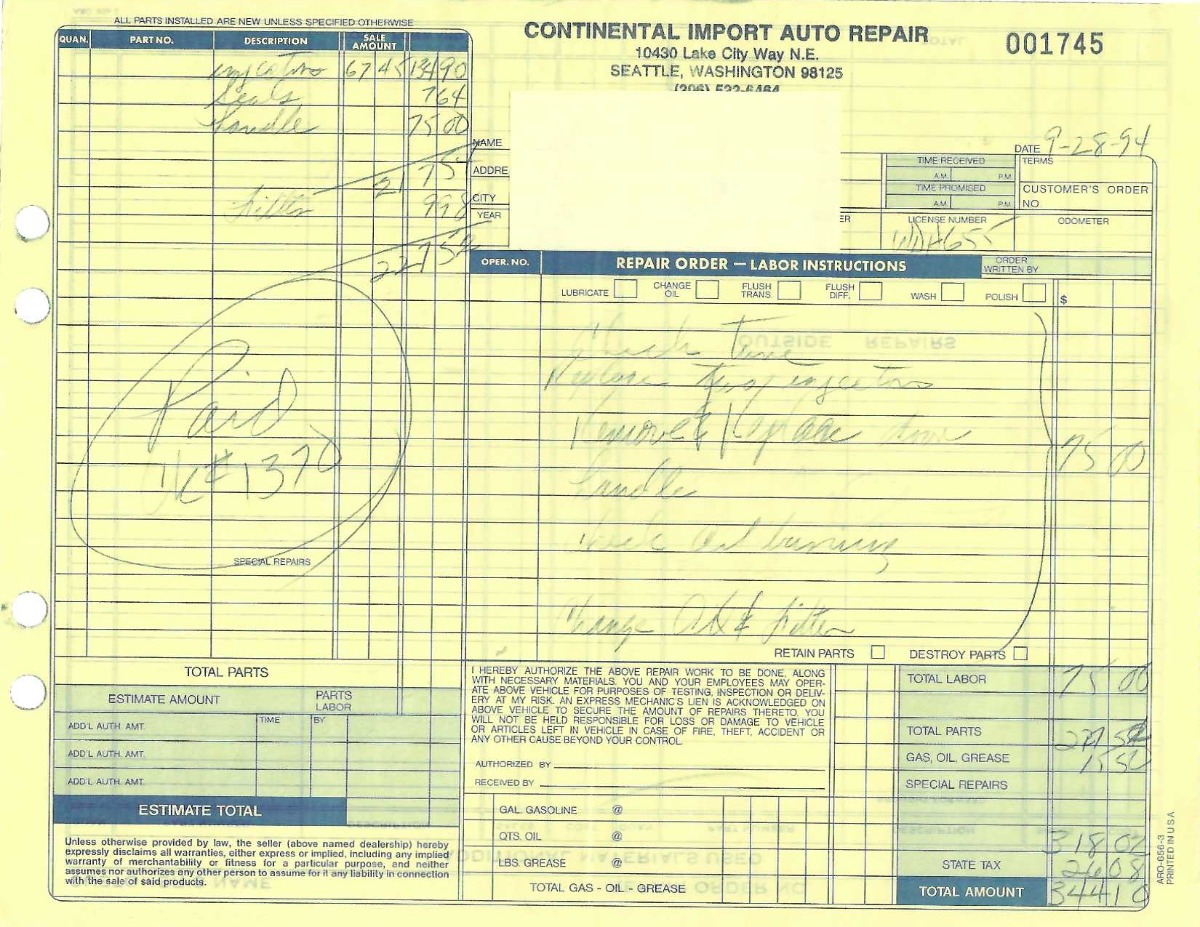 ALL PARTS INSTALLED ARE NEW UNLESS SPECIFIED OTHERWISE
CONTINENTAL IMPORT AUTO REPAIR
10430 Lake City Way N.E.
SEATTLE, WASHINGTON 98125
(206) 522-6464
001745
QUAN. PART NO. DESCRIPTION SALE AMOUNT
injectors 67 45 134 90
Seals 7 64
handle 75 00
217 54
filter 9 98
227 52
Paid
CK# 1370
SPECIAL REPAIRS
NAME
ADDRE
CITY
YEAR
DATE 9-28-94
TIME RECEIVED
A.M. P.M.
TIME PROMISED
A.M. P.M.
TERMS
CUSTOMER'S ORDER NO.
ER
LICENSE NUMBER
WDH655
ODOMETER
OPER. NO. REPAIR ORDER — LABOR INSTRUCTIONS ORDER WRITTEN BY
LUBRICATE CHANGE OIL FLUSH TRANS FLUSH DIFF. WASH POLISH $
Check
Replace two injectors
Remove & Replace door 75 00
handle
Check oil burning
Change Oil & filter
RETAIN PARTS DESTROY PARTS
TOTAL PARTS
ESTIMATE AMOUNT PARTS LABOR
ADD'L AUTH. AMT. TIME BY
ADD'L AUTH. AMT.
ADD'L AUTH. AMT.
ESTIMATE TOTAL
Unless otherwise provided by law, the seller (above named dealership) hereby
expressly disclaims all warranties, either express or implied, including any implied
warranty of merchantability or fitness for a particular purpose, and neither
assumes nor authorizes any other person to assume for it any liability in connection
with the sale of said products.
I HEREBY AUTHORIZE THE ABOVE REPAIR WORK TO BE DONE, ALONG
WITH NECESSARY MATERIALS. YOU AND YOUR EMPLOYEES MAY OPER-
ATE ABOVE VEHICLE FOR PURPOSES OF TESTING, INSPECTION OR DELIV-
ERY AT MY RISK. AN EXPRESS MECHANIC'S LIEN IS ACKNOWLEDGED ON
ABOVE VEHICLE TO SECURE THE AMOUNT OF REPAIRS THERETO. YOU
WILL NOT BE HELD RESPONSIBLE FOR LOSS OR DAMAGE TO VEHICLE
OR ARTICLES LEFT IN VEHICLE IN CASE OF FIRE, THEFT, ACCIDENT OR
ANY OTHER CAUSE BEYOND YOUR CONTROL.
AUTHORIZED BY
RECEIVED BY
GAL. GASOLINE @
QTS. OIL @
LBS. GREASE @
TOTAL GAS - OIL - GREASE
TOTAL LABOR 75 00
TOTAL PARTS 227 52
GAS, OIL, GREASE 15 50
SPECIAL REPAIRS
318 02
STATE TAX 26 08
TOTAL AMOUNT 344 10
ARO-656-3
PRINTED IN U S A